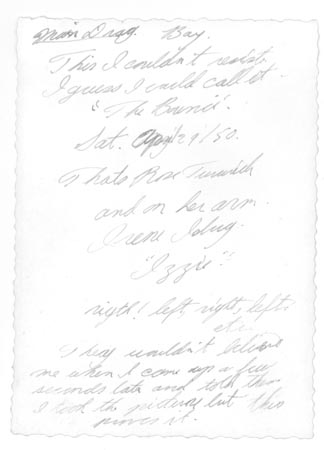 Main Drag. Bay.
This I couldn't resist,
I guess I could call it.
"The Bounce".
Sat. April 29/50.
Thats Rose
and on her arm.
Irene
"Izzie".
rigth! left right, left.
etc.
They wouldn't believe
me when I come up a few
seconds late and told them
I took the picture but this
proves it.